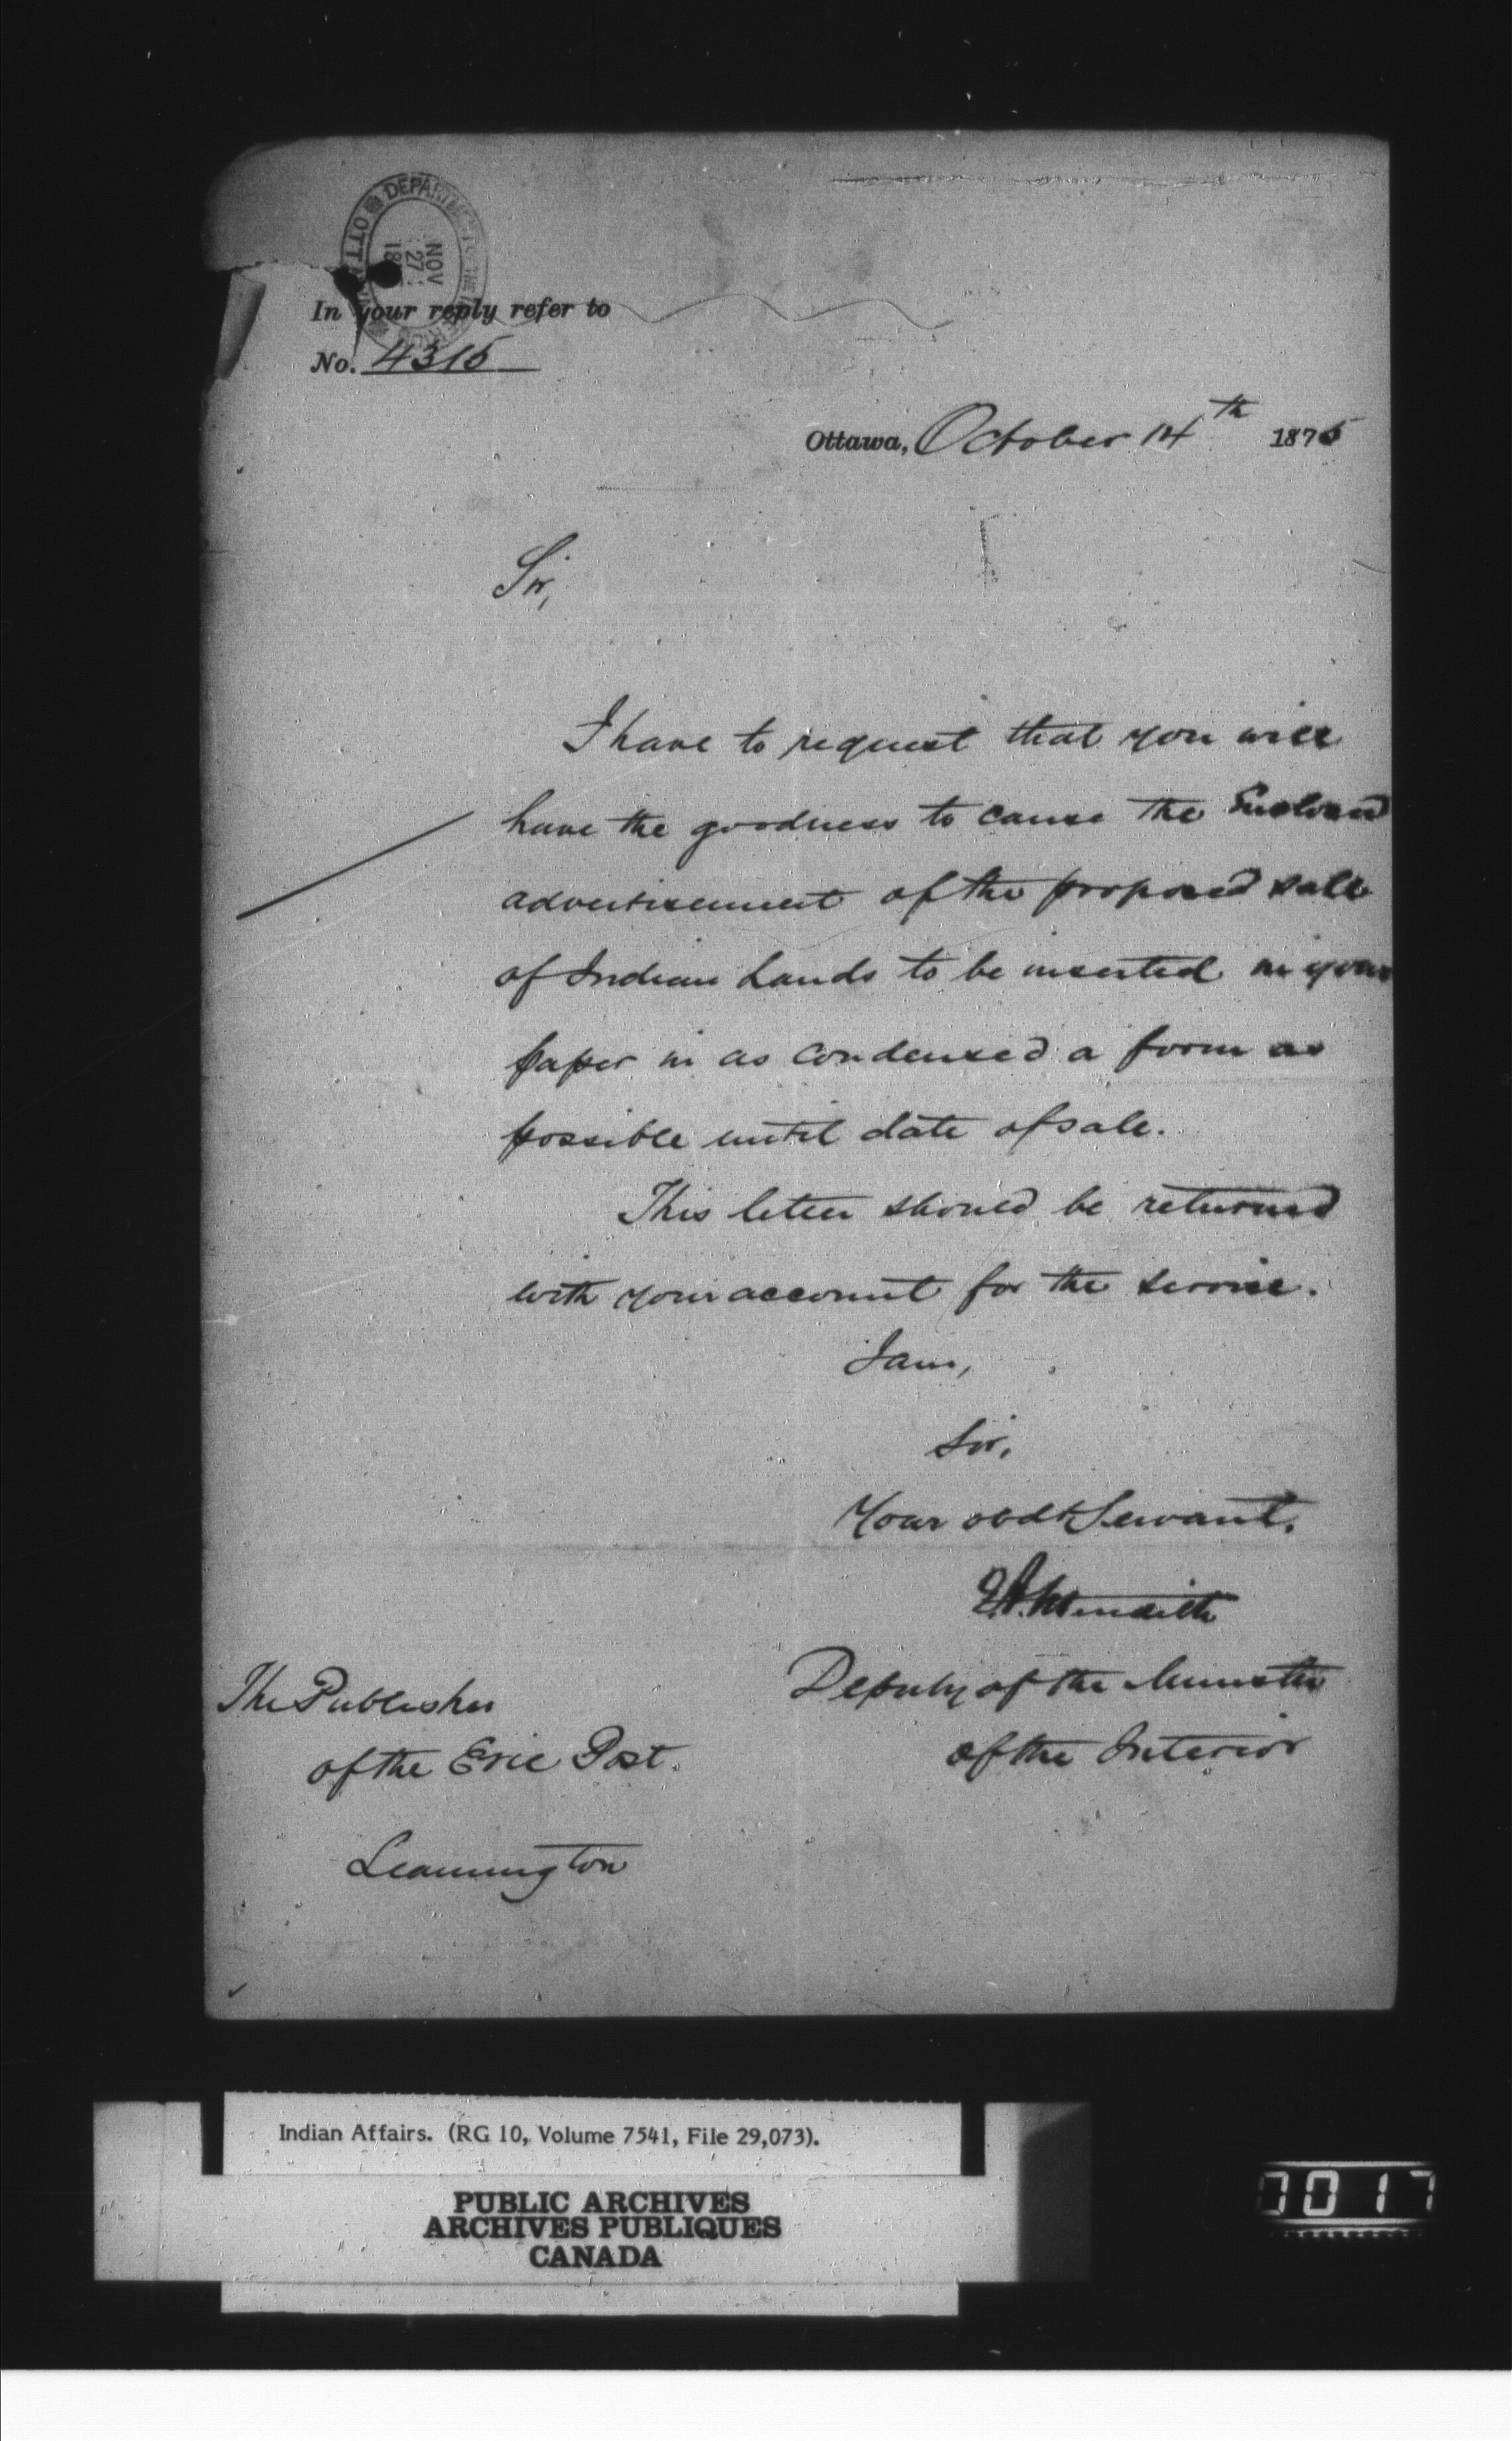 DEPARTMENT OF THE INTERIOR
OTTAWA
NOV
27
18
In your reply refer to
No. 4315
Ottawa, October 14th 1875
Sir,
I have to request that you will
have the goodness to cause the Enclosed
advertisement of the proposed sale
of Indian Lands to be inserted in your
paper in as condensed a form as
possible until date of sale.
This letter should be returned
with your account for the service.
I am,
Sir,
Your obdt Servant.
E.A. Meredith
Deputy of the Minister
of the Interior
The Publisher
of the Erie Post.
Leamington
Indian Affairs. (RG 10, Volume 7541, File 29,073).
PUBLIC ARCHIVES
ARCHIVES PUBLIQUES
CANADA
0017